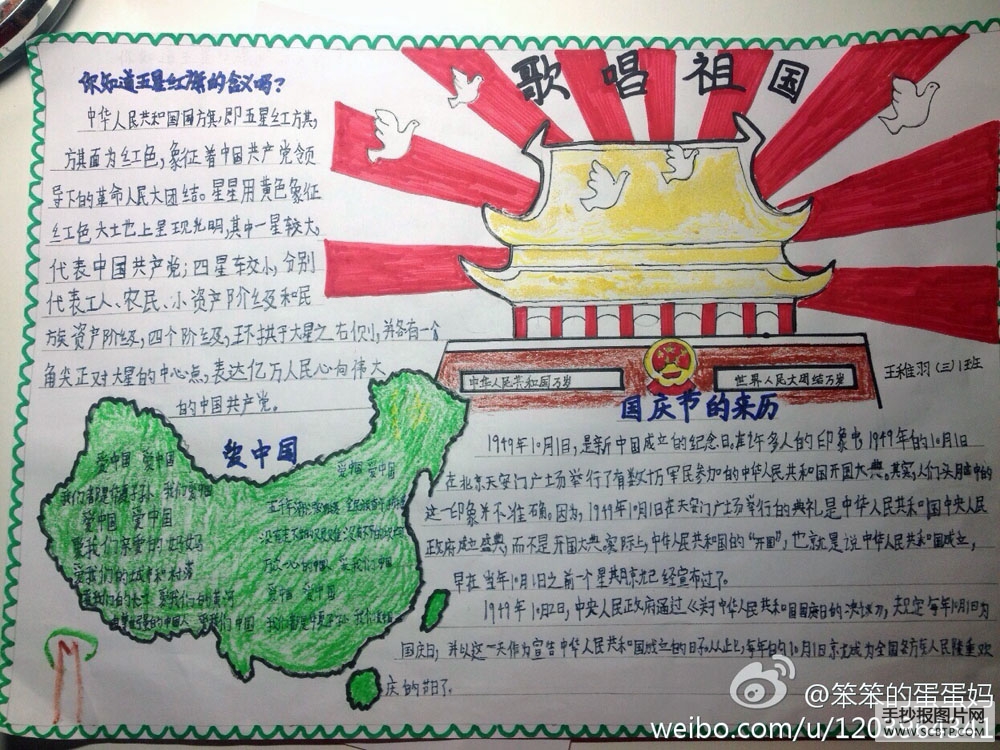 歌唱祖国
你知道五星红旗的含义吗?
中华人民共和国国旗,即五星红旗,
旗面为红色,象征着中国共产党领
导下的革命人民大团结。星星用黄色象征
红色大地上呈现光明,其中一星较大,
代表中国共产党;四星较小,分别
代表工人、农民、小资产阶级和民
族资产阶级,四个阶级,环拱于大星之右侧,并各有一个
角尖正对大星的中心点,表达亿万人民心向伟大
的中国共产党。
中华人民共和国万岁
世界人民大团结万岁
王稚羽(三)1班
国庆节的来历
1949年10月1日,是新中国成立的纪念日。在许多人的印象中1949年的10月1日
在北京天安门广场举行了有数十万军民参加的中华人民共和国开国大典。其实,人们头脑中的
这一印象并不准确。因为,1949年10月1日在天安门广场举行的典礼是中华人民共和国中央人民
政府成立盛典,而不是开国大典。实际上,中华人民共和国的“开国”,也就是说中华人民共和国成立,
早在当年10月1日之前一个星期就已经宣布过了。
1949年10月2日,中央人民政府通过《关于中华人民共和国国庆日的决议》,规定每年10月1日为
国庆日,并以这一天作为宣告中华人民共和国成立的日子。从此,每年的10月1日就成为全国各族人民隆重欢
庆的节日了。
爱中国
爱中国 爱中国
我们都是华夏子孙 我们爱中国
爱中国 爱中国
爱我们亲爱的妈妈
爱我们的城市和村落
爱我们的长江 爱我们的黄河
爱中国 爱中国
万众一心的中国 爱我们中国
爱中国 爱中国
我们都是华夏子孙 我们爱中国
@笨笨的蛋蛋妈
手抄报图片网
WWW.SCBTP.COM